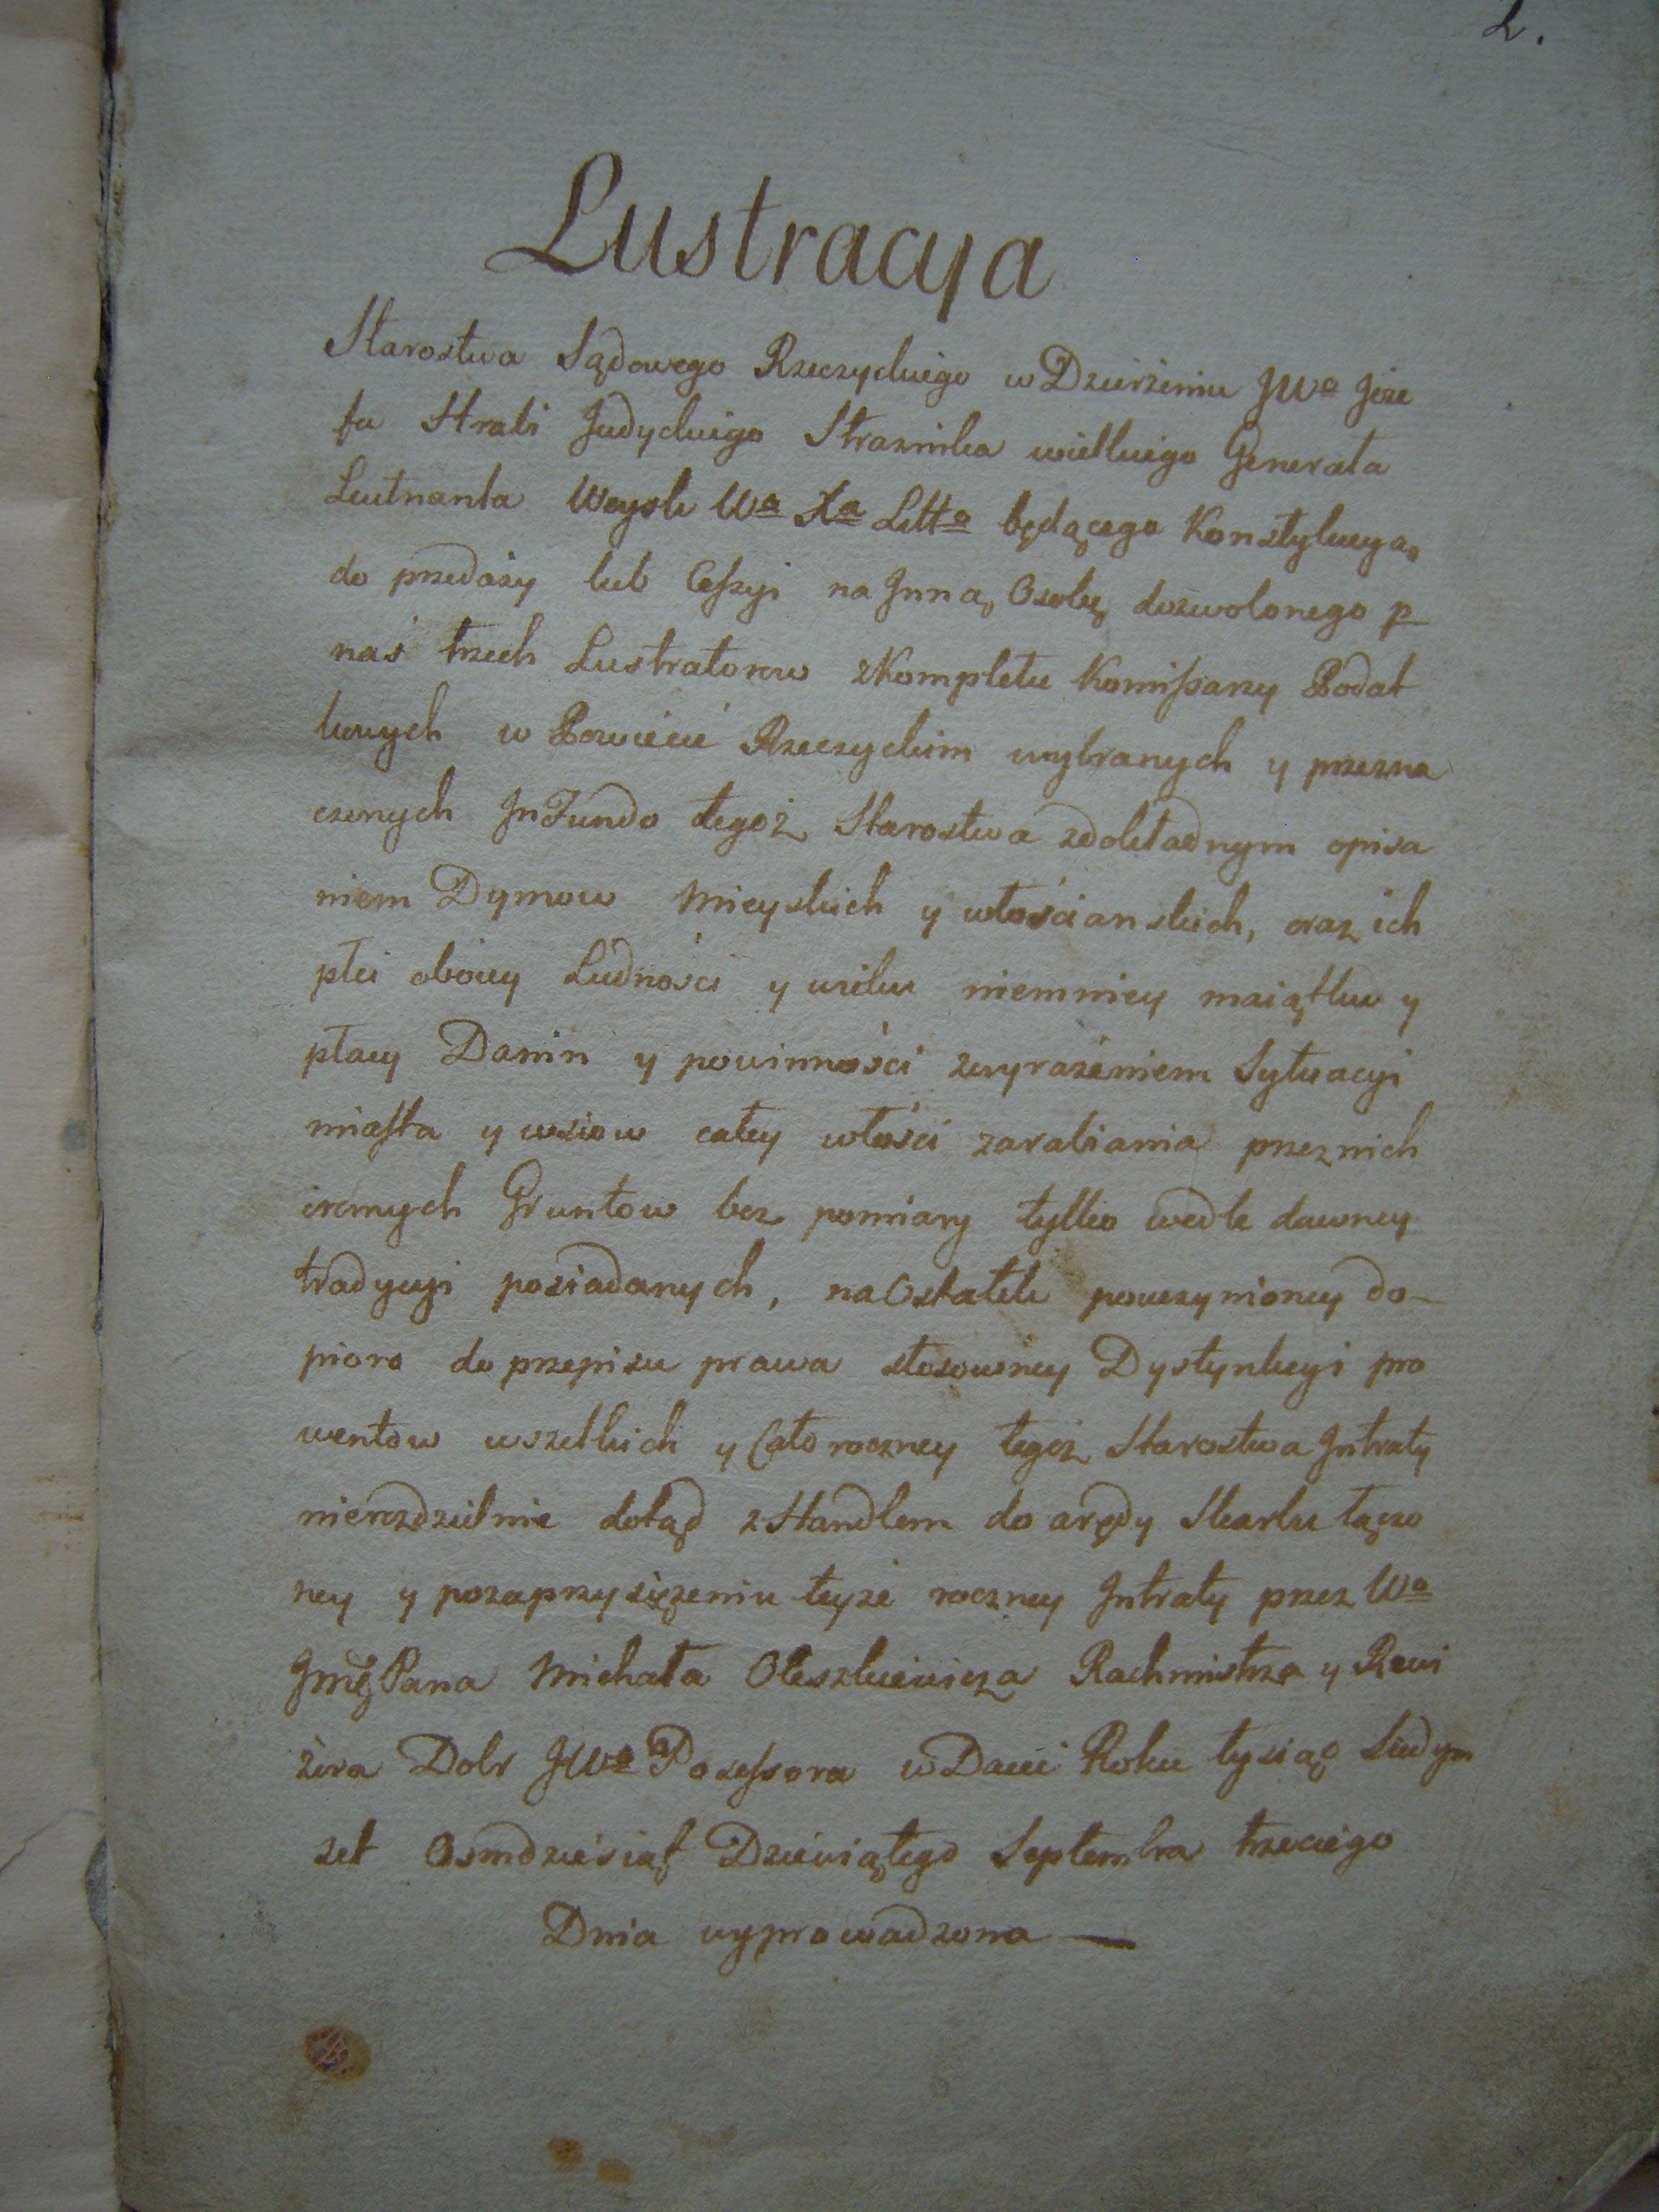 2.
Lustracyia
Starostwa Sądowego Rzeczyckiego w Dzierżeniu JWo Joze
fa Hrabi Judyckiego Straznika wielkiego Generała
Leutnanta Woysk Wo Xa Litto będącego Konstytucyą
do przedaży lub Ceſsyi na Inną Osobę dozwolonego p
naś trzech Lustratorow z Kompletu Komiſsarzy Podat
kowych w Powiecie Rzeczyckim wybranych y przezna
czonych In Fundo tegoż Starostwa z dokładnym opisa
niem Dymow Mieyskich y włościanskich, oraz ich
płci oboiey Ludności y wieku niemniey maiątku y
płacy Danin y powinności z wyrażeniem Sytuacyi
miaſta y wsiow całey włości zarabiania przez nich
iremnych Gruntow bez pomiary tylko wedle dawney
tradycyi posiadanych, na Ostatek poczynioney do-
pioro do przepisu prawa stosowney Dystynkcyi pro
wentow wszelkich y Całoroczney tegoż Starostwa Intraty
nierozdzielnie dotąd z Handlem do arędy Skarbu łączo
ney y po zaprzysiężeniu teyże roczney Intraty przez Wo
Jmć Pana Michała Oleszkiewicza Rachmistrza y Rewi
zora Dobr JWo Poseſsora w Dacie Roku tysiąc Siedym
set Osmdziesiąt Dziewiątego Septembra trzeciego
Dnia wyprowadzona —